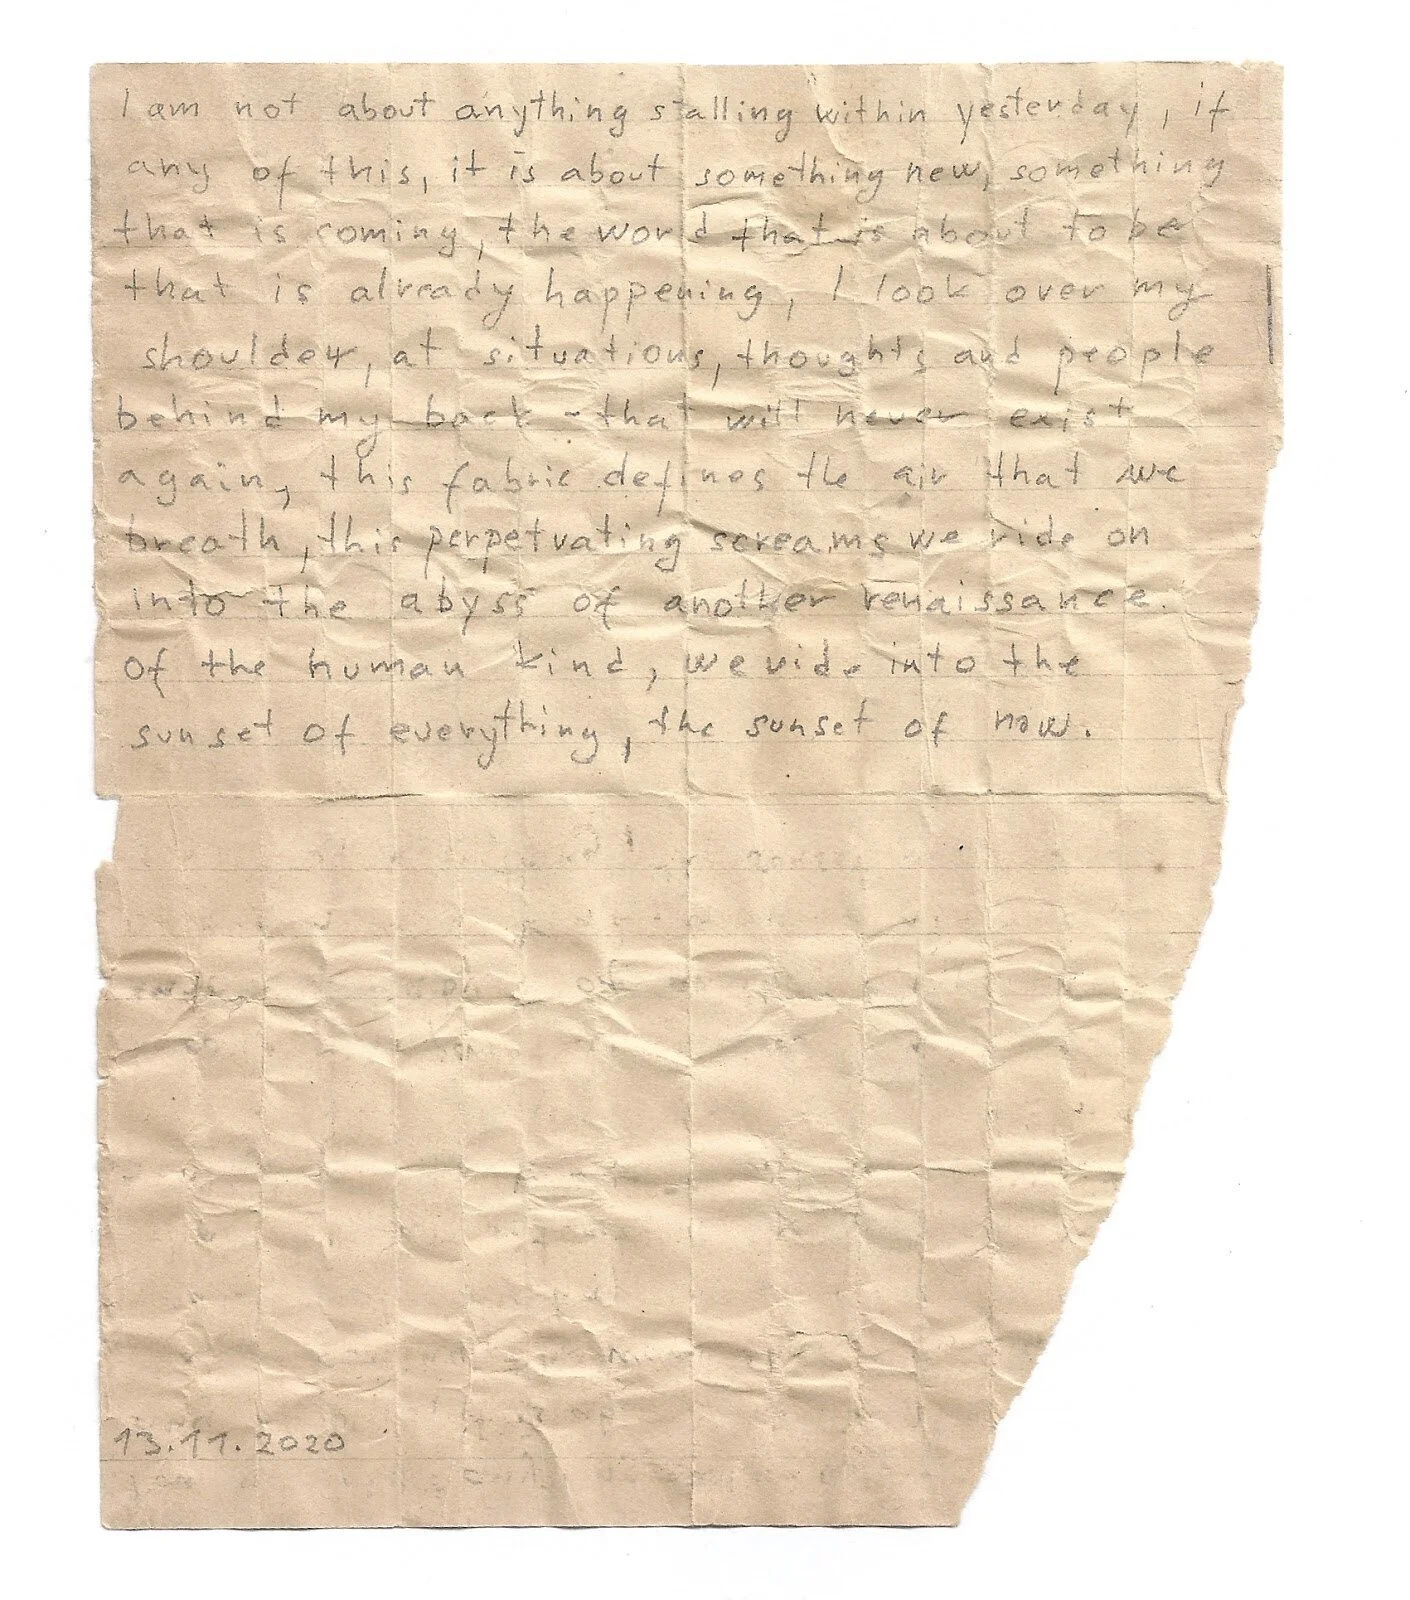 I am not about anything stalling within yesterday, if
any of this, it is about something new, something
that is coming, the world that is about to be
that is already happening, I look over my
shoulder, at situations, thoughts and people
behind my back - that will never exist
again, this fabric defines the air that we
breath, this perpetuating screams we ride on
into the abyss of another renaissance.
of the human kind, we ride into the
sunset of everything, the sunset of now.
13.11.2020